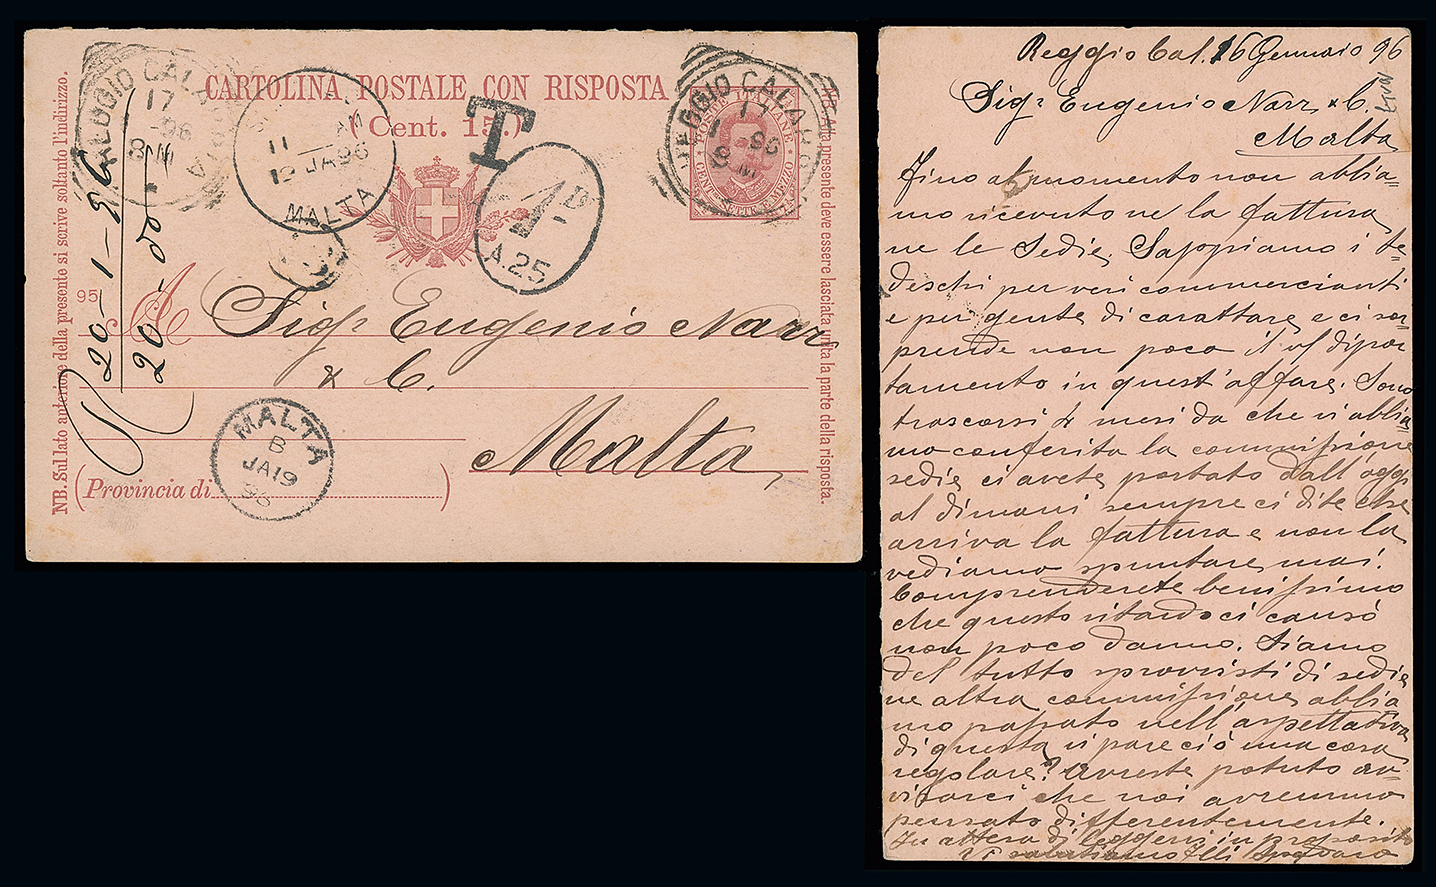 CARTOLINA POSTALE CON RISPOSTA
(Cent. 15.)
REGGIO CALABRIA
17
1-96
8M
11 AM
19 JA 96
MALTA
T
1D
A.25
REGGIO CALABRIA
17
1-96
8M
POSTE ITALIANE
CENT. SETTE E MEZZO
NB. Sul lato anteriore della presente si scrive soltanto l'indirizzo.
NB. La presente deve essere lasciata unita la parte della risposta.
95
20-1-96
20
A Sigr Eugenio Narr
& C.
Malta
(Provincia di )
MALTA
B
JA19
96
Reggio Cal. 16 Gennaio 96
Sigr Eugenio Narr & C.
Malta
Fino al momento non abbia-
mo ricevuto ne la fattura
ne le sedie. Sappiamo i te-
deschi per veri commercianti
e per gente di carattare e ci sor-
prende non poco il vs/ dipor-
tamento in quest'affare. Sono
trascorsi mesi da che vi abbia-
mo conferita la commissione
sedie ci avete portato dall'oggi
al dimani sempre ci dite che
arriva la fattura e non la
vediamo spuntare mai.
Comprenderete benissimo
che questo ritardo ci causò
non poco danno. Siamo
del tutto sprovvisti di sedie
ne altra commissione abbia
mo passato nell'aspettativa
di questa vi pare ciò una cosa
regolare? Avreste potuto av-
visarci che noi avremmo
pensato differentemente.
In attesa di leggervi in proposito
Vi salutiamo Flli